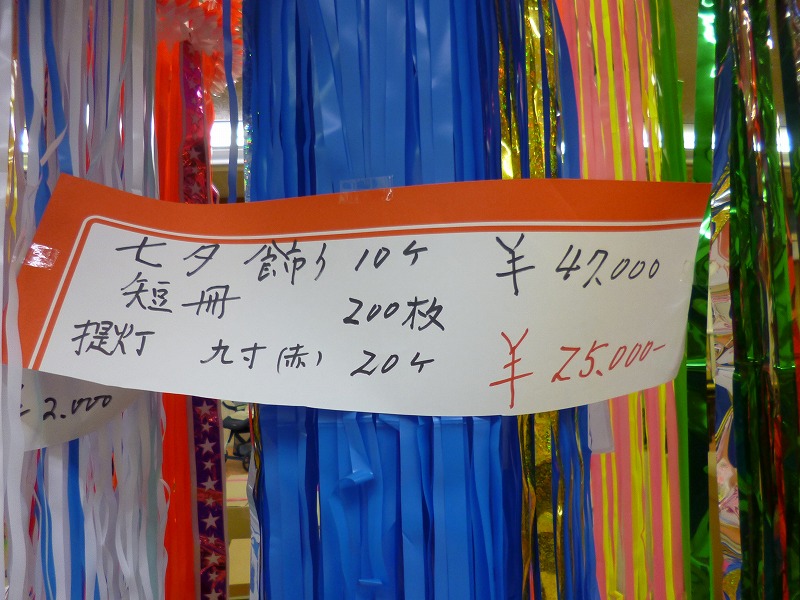 七夕飾り 10ケ ¥47,000
短冊 200枚
提灯 九寸(赤) 20ケ ¥25,000-
2,000